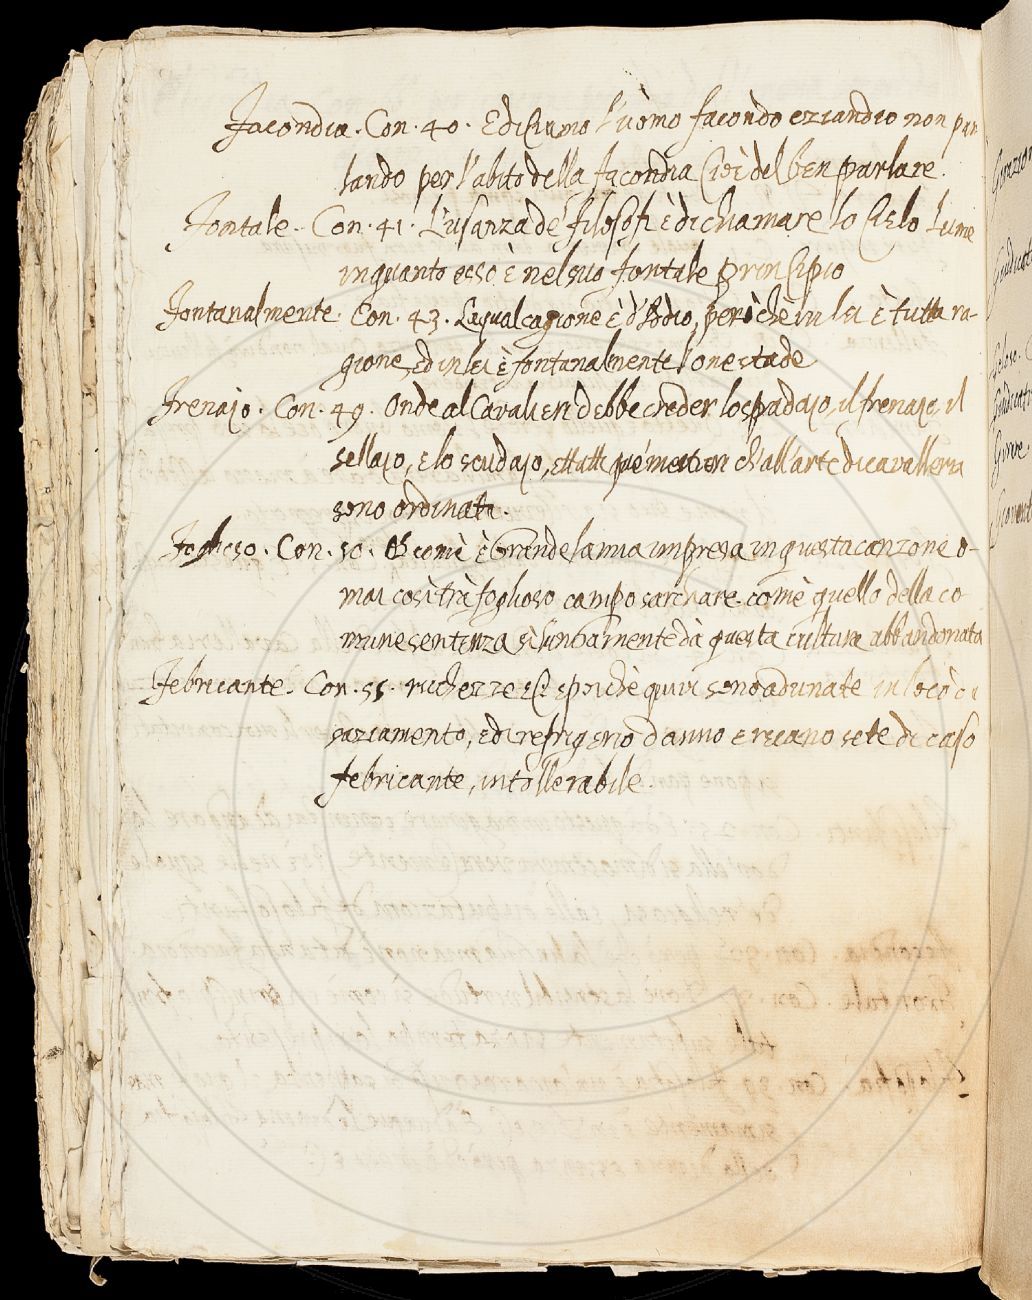 Facondia. Con. 40. E diciamo l'uomo facondo eziandio non par
lando per l'abito della facondia cioè del ben parlare.
Fontale. Con. 41. L'usanza de' filosofi è di chiamare lo Cielo lume
inquanto esso è nel suo fontale principio
Fontanalmente. Con. 43. La qual cagione è d'Iddio, però che in lei è tutta ra-
gione, ed in lei è fontanalmente l'onestade
Frenajo. Con. 49. Onde al Cavalieri debbe creder lo spadajo, il frenajo, il
sellajo, e lo scudajo, e tutti que' mestieri ch'all'arte di cavalleria
sono ordinati.
Foglioso. Con. 50. come è grande la mia impresa in questa canzone o-
mai così trà foglioso campo sarchiare, come quello della co-
mune sentenza sì lungamente da questa cultura abbandonata
Febricante. Con. 55. richezze epoichè quivi sono adunate in loco di
saziamento, e di refrigerio danno e recano sete di caso
febricante, intollerabile.